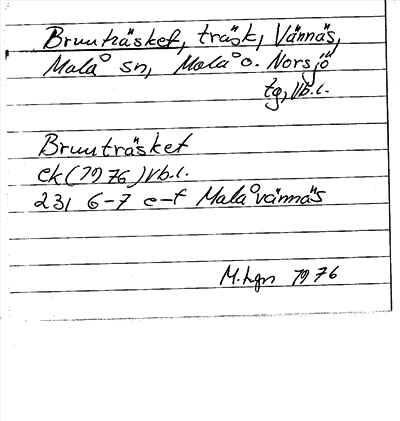 Brunträsket, träsk, Vännäs,
Malå sn, Malå o. Norsjö
tg, Vb.l.
Brunträsket
ek (1976) Vb.l.
23I 6-7 e-f Malåvännäs
M.hgn 1976